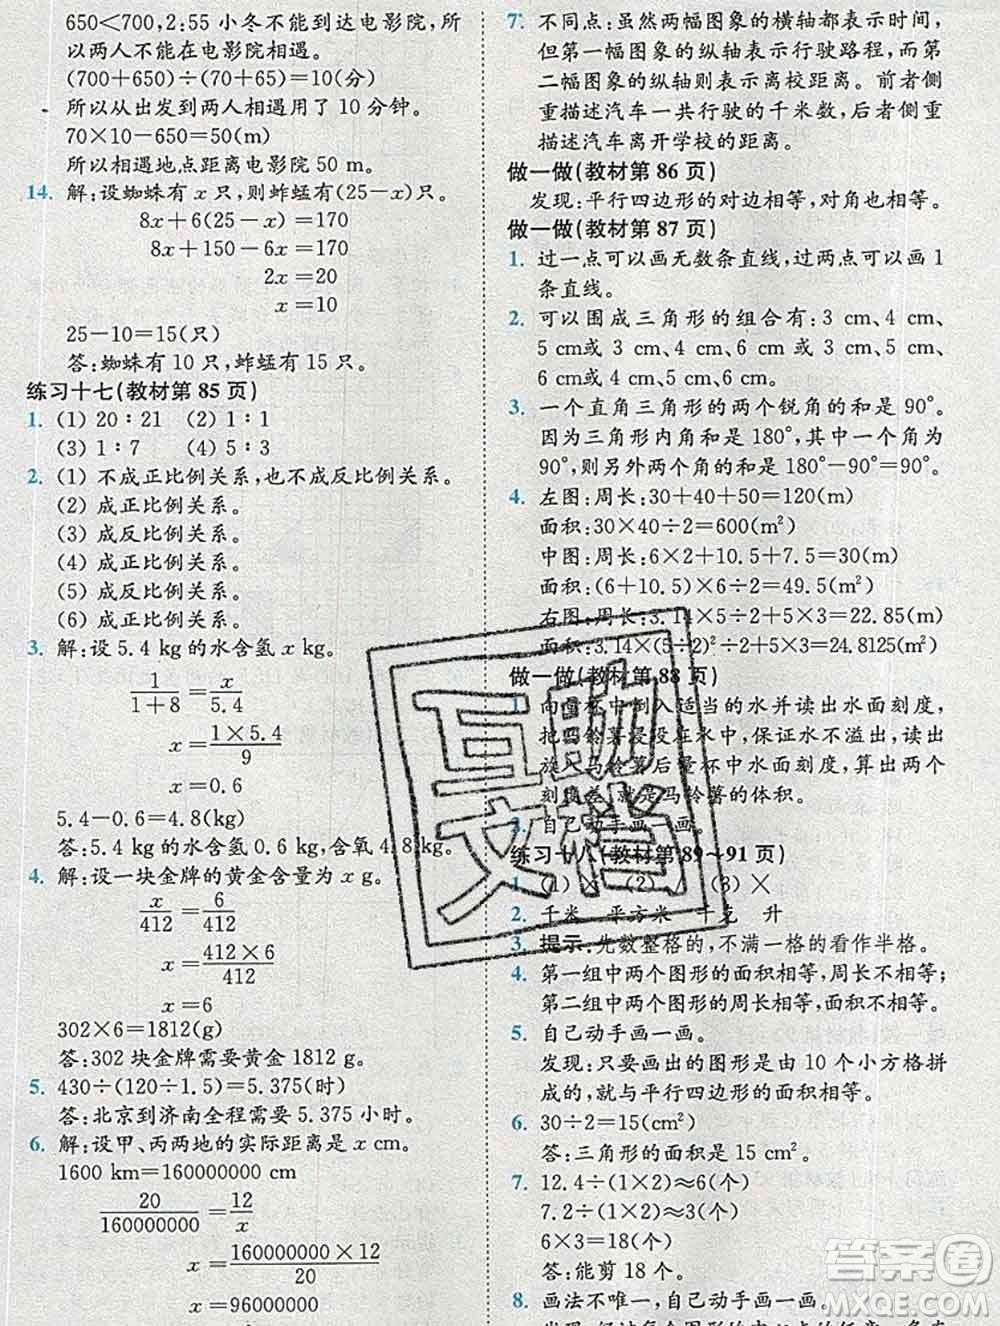 650<700,2:55 小冬不能到达电影院,所
以两人不能在电影院相遇。
(700+650)÷(70+65)=10(分)
所以从出发到两人相遇用了 10 分钟。
70×10-650=50(m)
所以相遇地点距离电影院 50 m。
14. 解:设蜘蛛有 x 只,则蚱蜢有(25-x)只。
8x+6(25-x)=170
8x+150-6x=170
2x=20
x=10
25-10=15(只)
答:蜘蛛有 10 只,蚱蜢有 15 只。
练习十七(教材第 85 页)
1. (1) 20∶21 (2) 1∶1
(3) 1∶7 (4) 5∶3
2. (1) 不成正比例关系,也不成反比例关系。
(2) 成正比例关系。
(3) 成反比例关系。
(4) 成正比例关系。
(5) 成反比例关系。
(6) 成正比例关系。
3. 解:设 5.4 kg 的水含氢 x kg。
1/(1+8)=x/5.4
x=(1×5.4)/9
x=0.6
5.4-0.6=4.8(kg)
答:5.4 kg 的水含氢 0.6 kg,含氧 4.8 kg。
4. 解:设一块金牌的黄金含量为 x g。
x/412=6/412
x=(412×6)/412
x=6
302×6=1812(g)
答:302 块金牌需要黄金 1812 g。
5. 430÷(120÷1.5)=5.375(时)
答:北京到济南全程需要 5.375 小时。
6. 解:设甲、丙两地的实际距离是 x cm。
1600 km=160000000 cm
20/160000000=12/x
x=(160000000×12)/20
x=96000000
7. 不同点:虽然两幅图象的横轴都表示时间,
但第一幅图象的纵轴表示行驶路程,而第
二幅图象的纵轴则表示离校距离。前者侧
重描述汽车一共行驶的千米数,后者侧重
描述汽车离开学校的距离。
做一做(教材第 86 页)
发现:平行四边形的对边相等,对角也相等。
做一做(教材第 87 页)
1. 过一点可以画无数条直线,过两点可以画 1
条直线。
2. 可以围成三角形的组合有:3 cm、4 cm、
5 cm或 3 cm、4 cm、6 cm或 4 cm、
5 cm、6 cm。
3. 一个直角三角形的两个锐角的和是 90°。
因为三角形内角和是 180°,其中一个角为
90°,则另外两个角的和是 180°-90°=90°。
4. 左图:周长:30+40+50=120(m)
面积:30×40÷2=600(m²)
中图:周长:6×2+10.5+7.5=30(m)
面积:(6+10.5)×6÷2=49.5(m²)
右图:周长:3.14×5÷2+5×3=22.85(m)
面积:3.14×(5÷2)²÷2+5×3=24.8125(m²)
做一做(教材第 88 页)
1. 向量杯中倒入适当的水并读出水面刻度,
把马铃薯浸没在水中,保证水不溢出,读出
放入马铃薯后量杯中水面的刻度,算出两个
刻度差,就是马铃薯的体积。
2. 自己动手画一画。
练习十八(教材第 89~91 页)
1. (1) × (2) (3) ×
2. 千米 平方米 千克 升
3. 提示:先数整格的,不满一格的看作半格。
4. 第一组中两个图形的面积相等,周长不相等;
第二组中两个图形的周长相等,面积不相等。
5. 自己动手画一画。
发现:只要画出的图形是由 10 个小方格拼
成的,就与平行四边形的面积相等。
6. 30÷2=15(cm²)
答:三角形的面积是 15 cm²。
7. 12.4÷(1×2)≈6(个)
7.2÷(1×2)≈3(个)
6×3=18(个)
答:能剪 18 个。
8. 画法不唯一,自己动手画一画。
互助
文档
答案圈
MXQE.COM